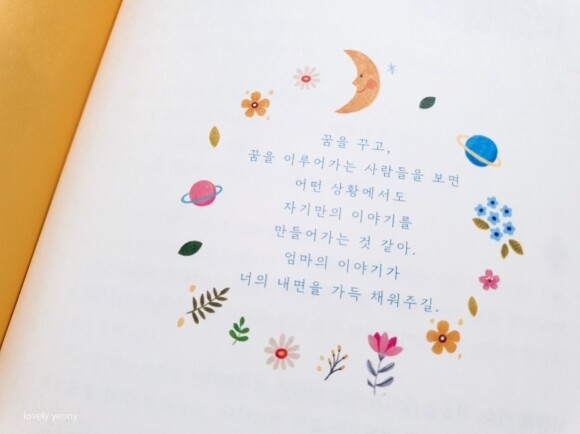 꿈을 꾸고,
꿈을 이루어가는 사람들을 보면
어떤 상황에서도
자기만의 이야기를
만들어가는 것 같아.
엄마의 이야기가
너의 내면을 가득 채워주길.
lovely yeony